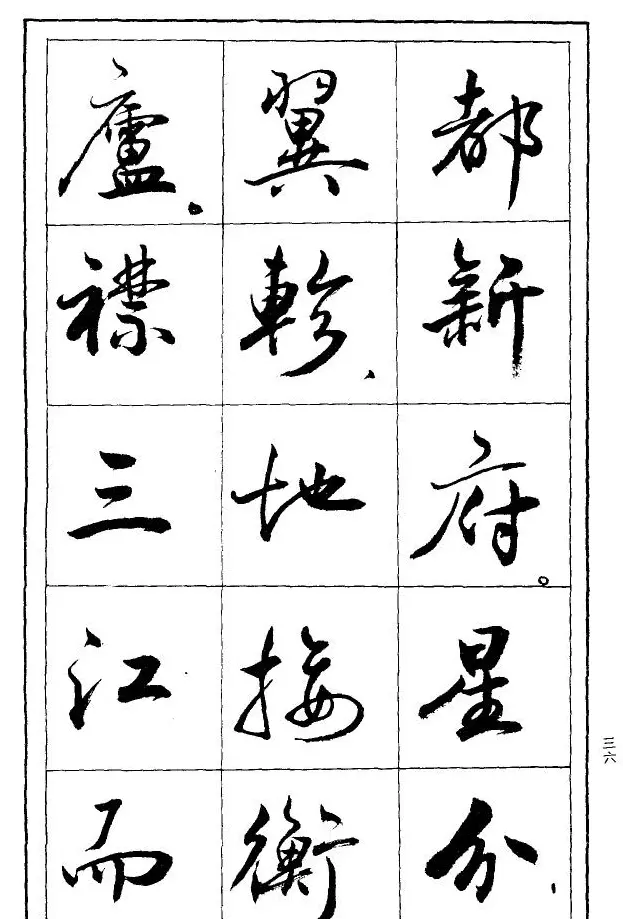 都新府。星分
翼軫、地接衡
廬。襟三江而
三六